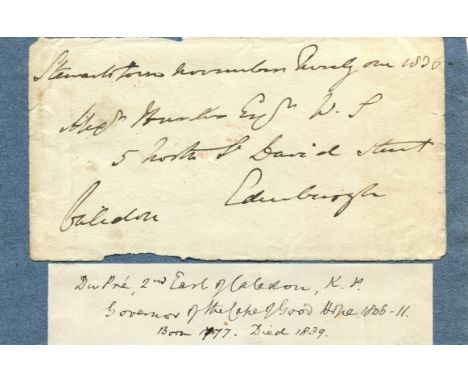 Stewartstown November Twenty one 1836
Alexr Hunter Esqr W. S
5 North St David Street
Edinburgh
Caledon
Du Pré, 2nd Earl of Caledon, K. P.
Governor of the Cape of Good Hope 1806-11.
Born 1777. Died 1839.